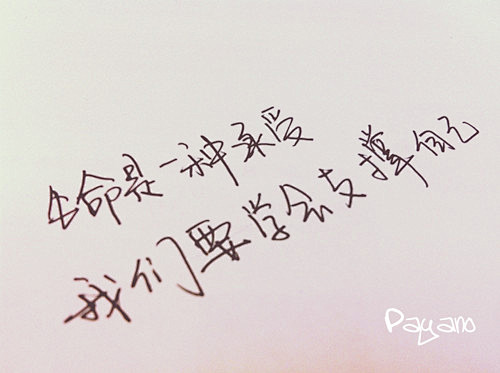 生命是一种承受
我们要学会支撑自己
Payano